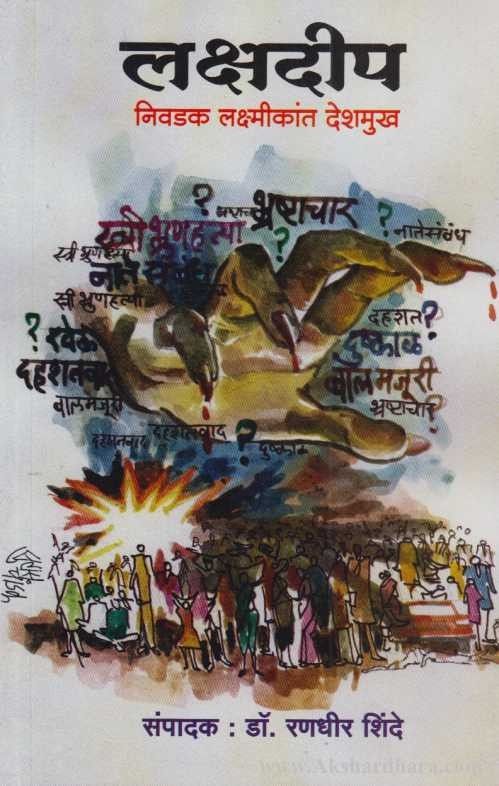 लक्षदीप
निवडक लक्ष्मीकांत देशमुख
? भ्रष्टाचार ?
स्त्रीभ्रूणहत्या ? नातेसंबंध
स्त्री भ्रूणहत्या
नाते संबंध
स्त्री भ्रूणहत्या
दहशत ?
? खेळ दुष्काळ
दहशतवाद बालमजूरी
बालमजूरी भ्रष्टाचार
दहशतवाद दहशतवाद ? दुष्काळ
संपादक : डॉ. रणधीर शिंदे
www.Akshardhara.com